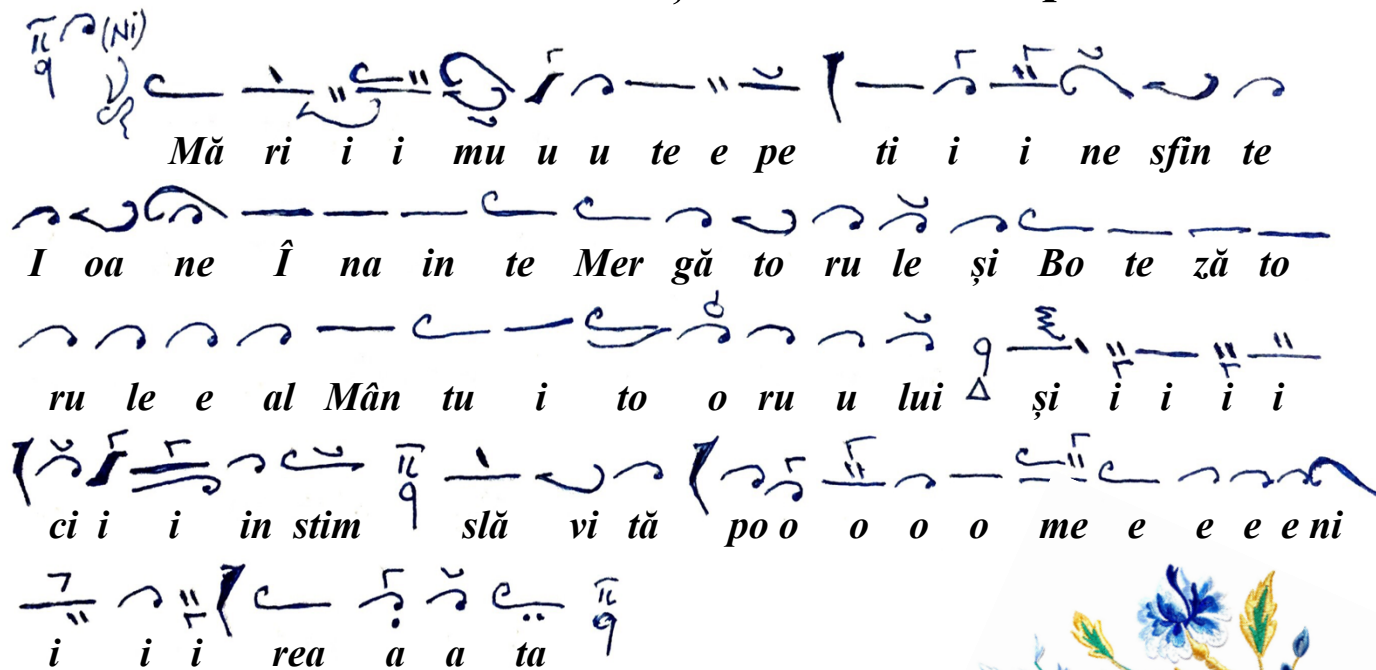 (Ni)
Mă ri i i mu u u te e pe ti i i ne sfin te
I oa ne Î na in te Mer gă to ru le și Bo te ză to
ru le e al Mân tu i to o ru u lui și i i i i
ci i i in stim slă vi tă po o o o o me e e e e ni
i i i rea a a ta